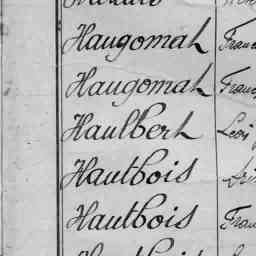 Haugomat Franç
Haugomat Franç
Haulbert Léon
Hautbois
Hautbois Fran